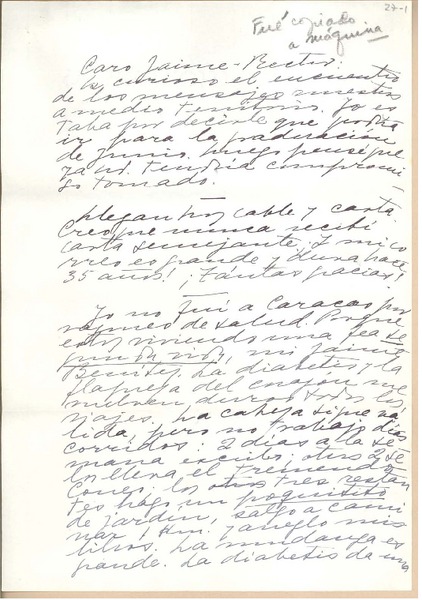 27-1
Fué copiado
a máquina
Caro Jaime-Rector:
Es curioso el encuentro
de los mensajes nuestros
a medio territorio. Yo es
taba por decirle que podría
ir para la graduación
de Junio. Luego pensé que
ya Ud. tendría compromi
so tomado.
Llegan hoy cable y carta.
Creo que nunca recibí
carta semejante. Y mi co
rreo es grande y dura hace
35 años! ¡Tantas gracias!
Yo no fuí a Caracas por
razones de salud. Porque
estoy viviendo una
mi Jaime
Benítez. La diabetes y la
flaqueza del corazón me
vuelven duros todos los
viajes. La cabeza sigue vá
lida, pero no trabajo días
corridos: 2 días a la se
mana escribo; otros 2 se
los lleva el tremendo
los otros tres restan
tes hago un poquisito
de jardín, salgo a cami
nar 1 Km. y arreglo mis
libros. La mudanza es
grande. La diabetis da una